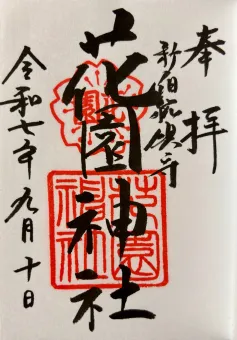 奉拝
新宿鎮守
花園神社
令和七年九月十日
花園神社